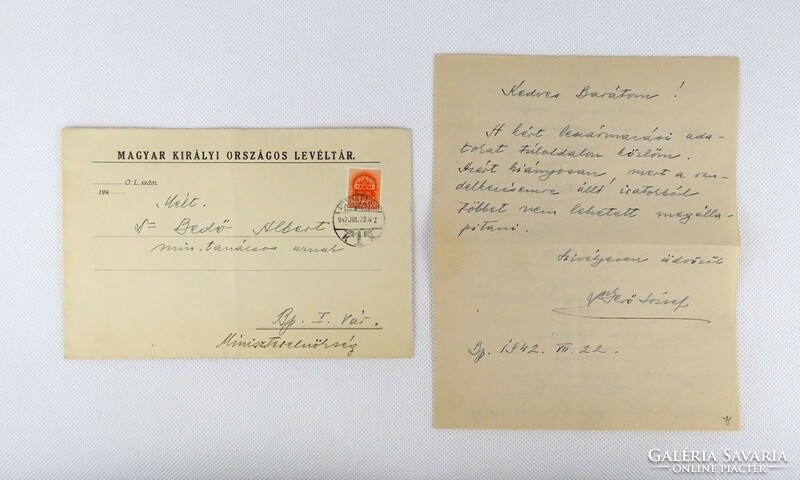 MAGYAR KIRÁLYI ORSZÁGOS LEVÉLTÁR.
O. L. szám.
194
Mélt.
Dr Bedő Albert
min. tanácsos úrnak
Bp. I. Vár.
Miniszterelnökség
942 JUL. 23
Kedves Barátom !
A kért leszármazási ada-
tokat túloldalon közlöm.
Azért hiányosan, mert a ren-
delkezésemre álló iratokból
többet nem lehetett megálla-
pítani.
Szívélyesen üdvözöl
József
Bp. 1942. VII. 22.
GALÉRIA SAVARIA
ONLINE PIACTÉR